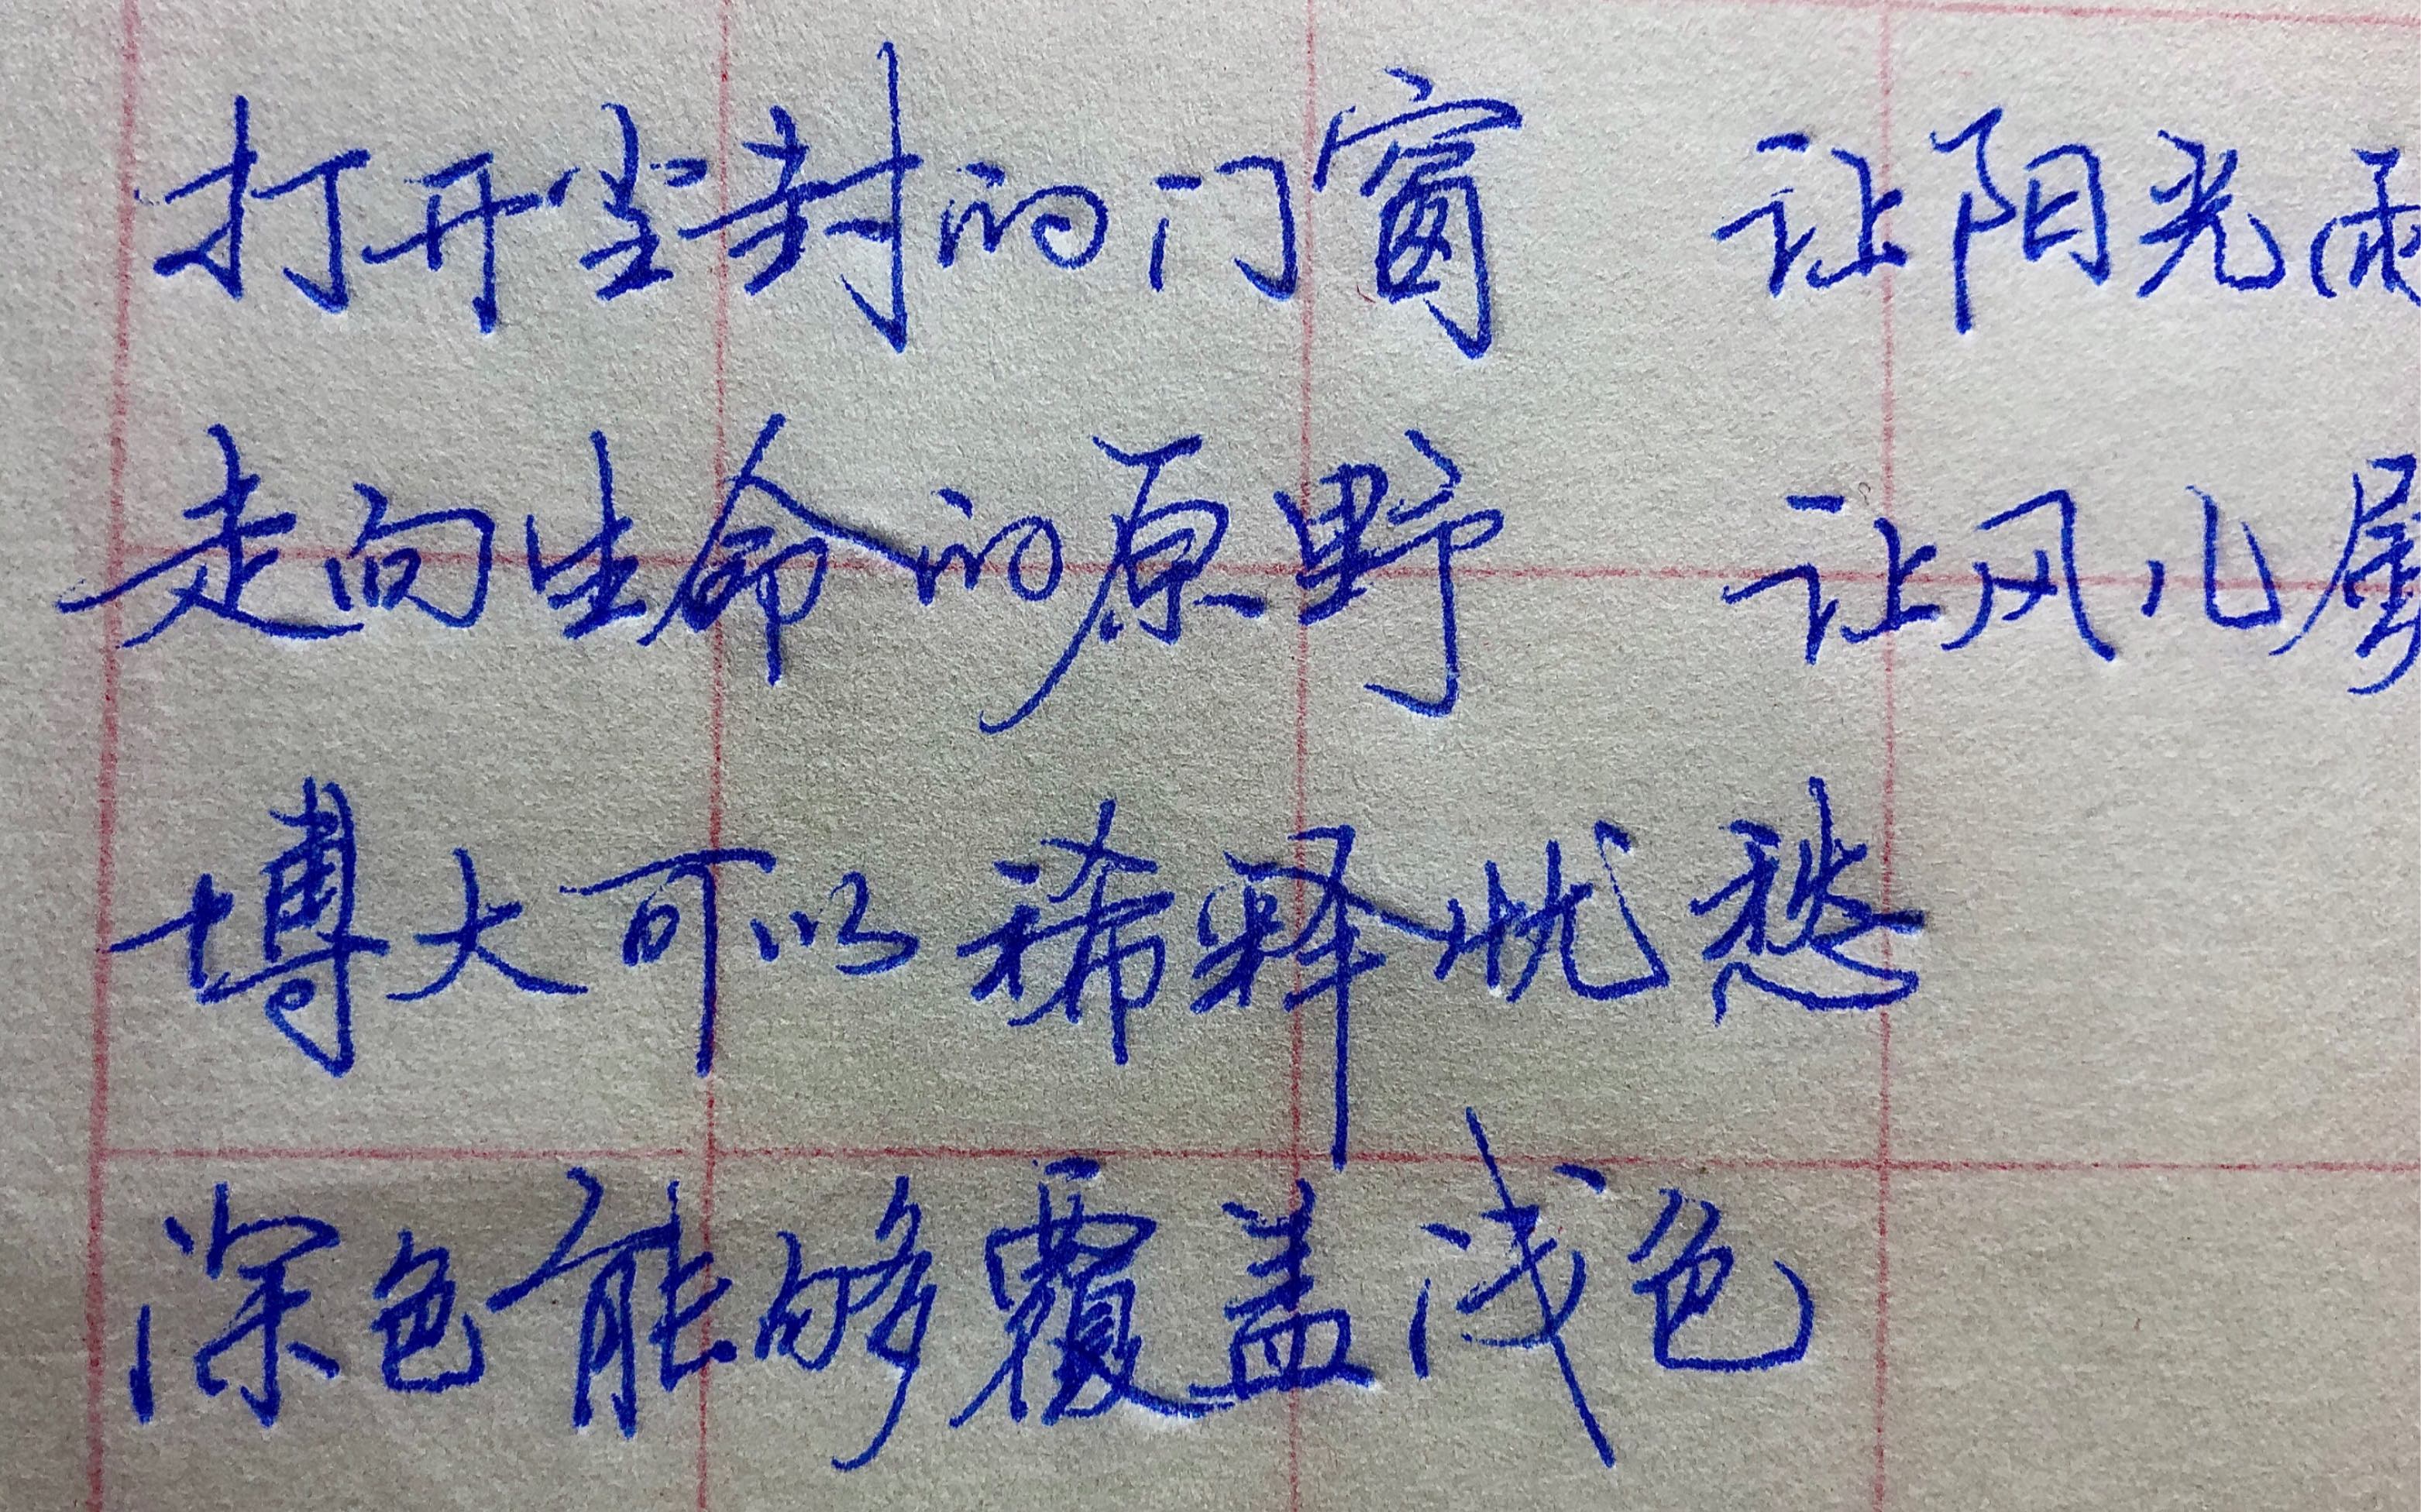 打开尘封的门窗 让阳光雨
走向生命的原野 让风儿
博大可以稀释忧愁
深色能够覆盖浅色